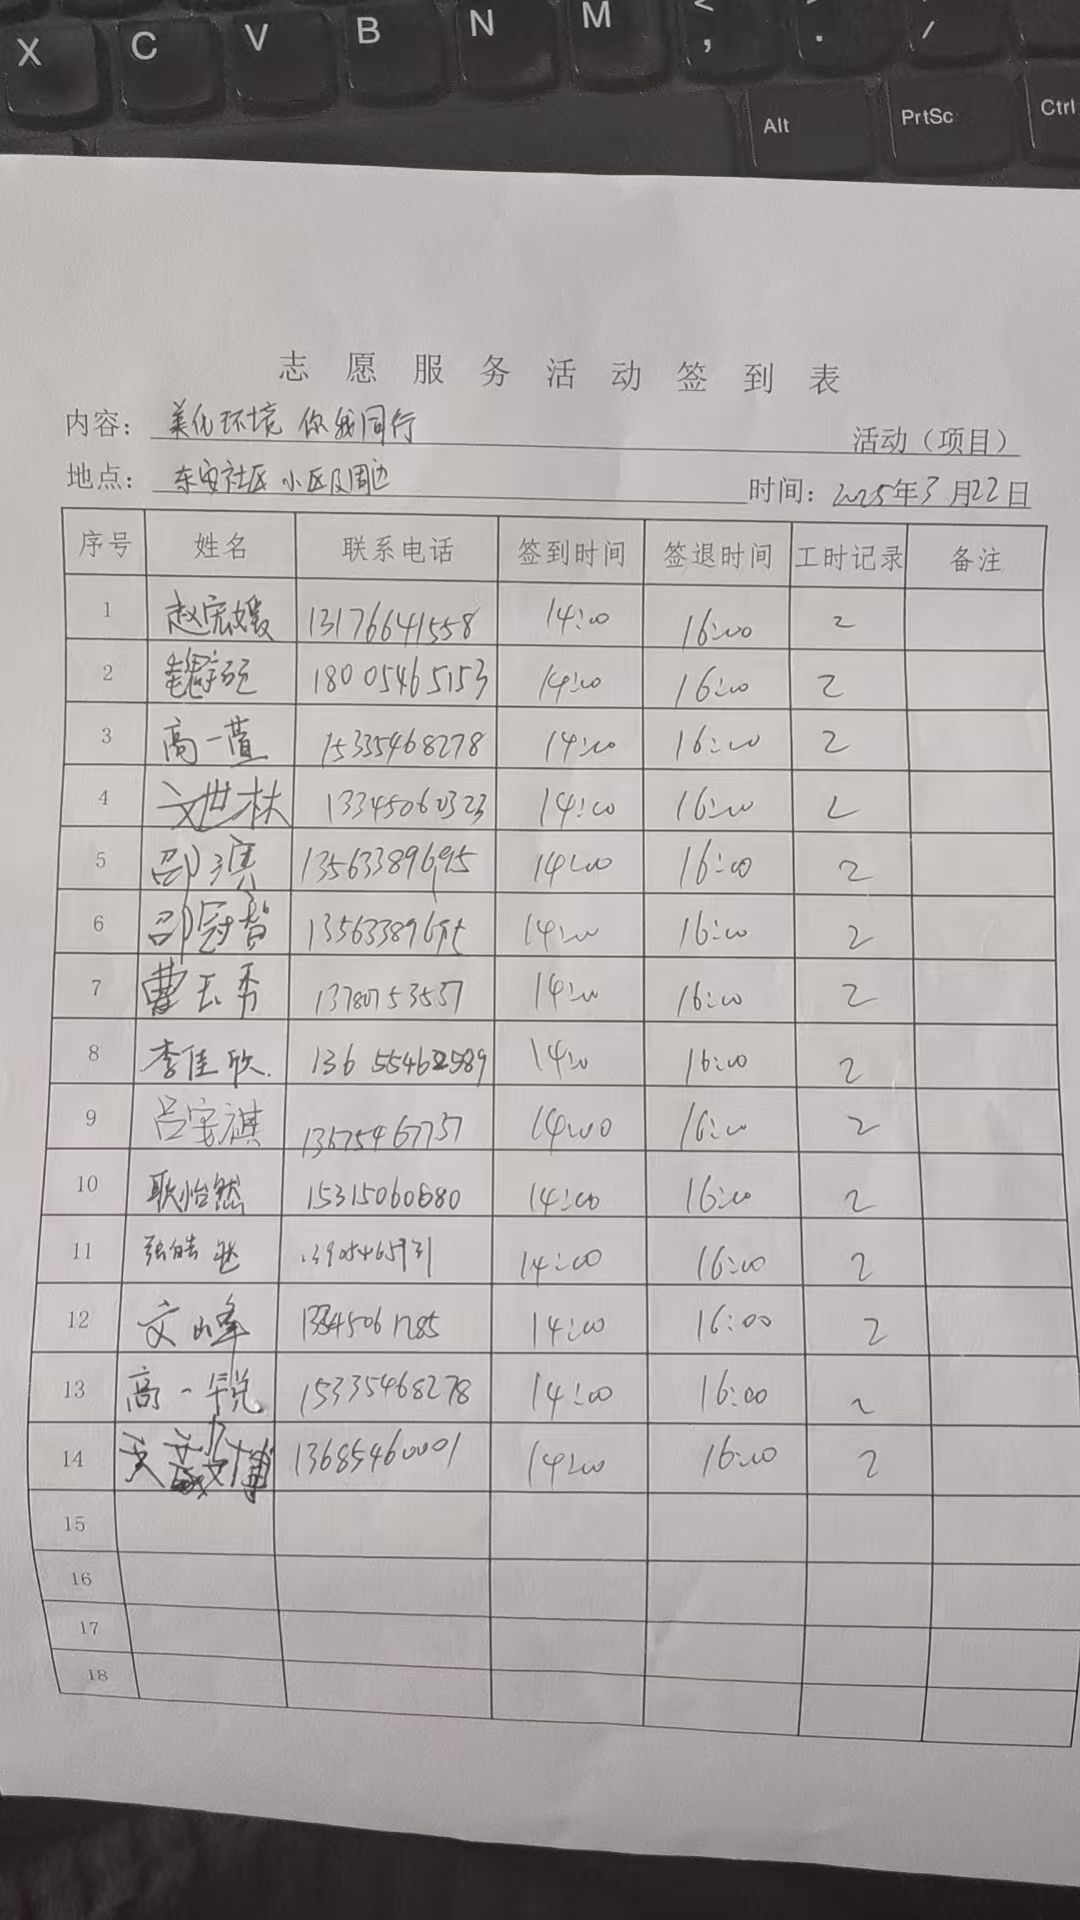 X C V B N M < , > . /
Alt PrtSc Ctrl
志愿服务活动签到表
内容： 美化环境 你我同行 活动（项目）
地点： 东安社区 小区及周边 时间：2025年3月22日
序号 姓名 联系电话 签到时间 签退时间 工时记录 备注
1 赵宏媛 13176641558 14:00 16:00 2
2 18005465153 14:00 16:00 2
3 高一萱 15335468278 14:00 16:00 2
4 文世林 13345060323 14:00 16:00 2
5 邵 13563389695 14:00 16:00 2
6 邵冠智 14:00 16:00 2
7 曹玉秀 14:00 16:00 2
8 李佳欣 13655462589 14:00 16:00 2
9 吕安祺 13675467757 14:00 16:00 2
10 耿怡然 15315060680 14:00 16:00 2
11 张皓 14:00 16:00 2
12 文山峰 14:00 16:00 2
13 高一 15335468278 14:00 16:00 2
14 13685460001 14:00 16:00 2
15
16
17
18